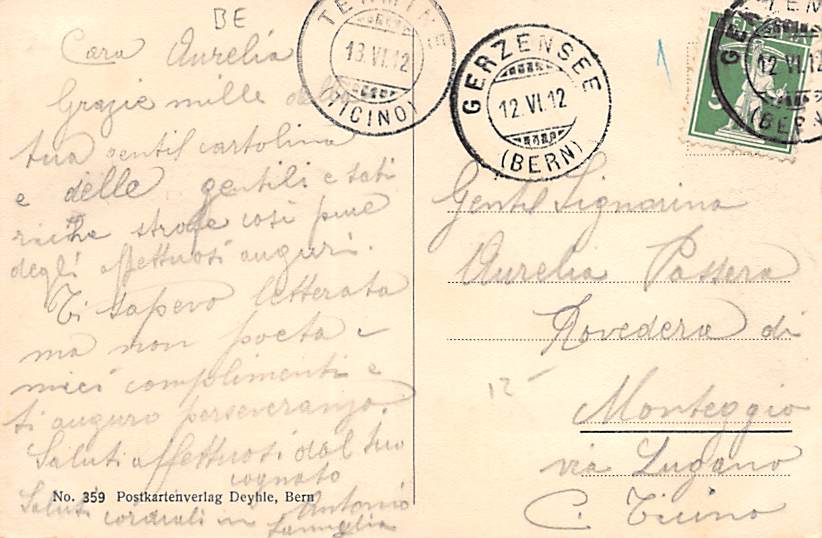 BE
Cara Aurelia
Grazie mille della
tua gentil cartolina
e delle gentili e
strofe così pure
degli affettuosi auguri.
Ti sapevo letterata
ma non poeta -
miei complimenti e
ti auguro perseveranza.
Saluti affettuosi dal tuo
cognato
Antonio
Saluti cordiali in famiglia
No. 359 Postkartenverlag Deyhle, Bern
13.VI.12
(TICINO)
GERZENSEE
12.VI.12
(BERN)
GERZENSEE
12.VI.12
(BERN)
5
Gentil Signorina
Aurelia Passera
Rovedera di
Monteggio
via Lugano
C. Ticino
12